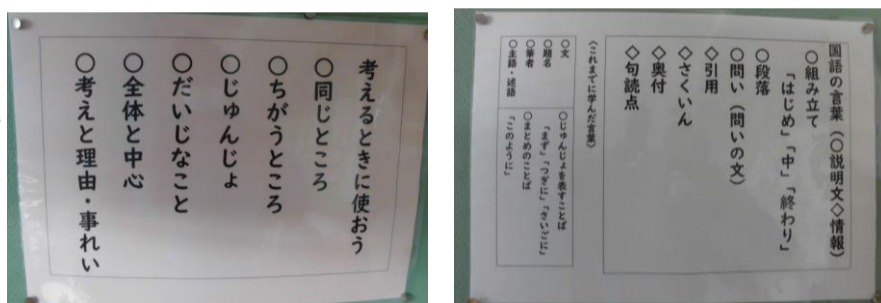 考えるときに使おう
○同じところ
○ちがうところ
○じゅんじょ
○だいじなこと
○全体と中心
○考えと理由・事れい
国語の言葉(○説明文◇情報)
○組み立て
「はじめ」「中」「終わり」
○段落
○問い(問いの文)
◇引用
◇さくいん
◇奥付
◇句読点
(これまでに学んだ言葉)
○文
○題名
○筆者
○主語・述語
○じゅんじょを表すことば
「まず」「つぎに」「さいごに」
○まとめのことば
「このように」